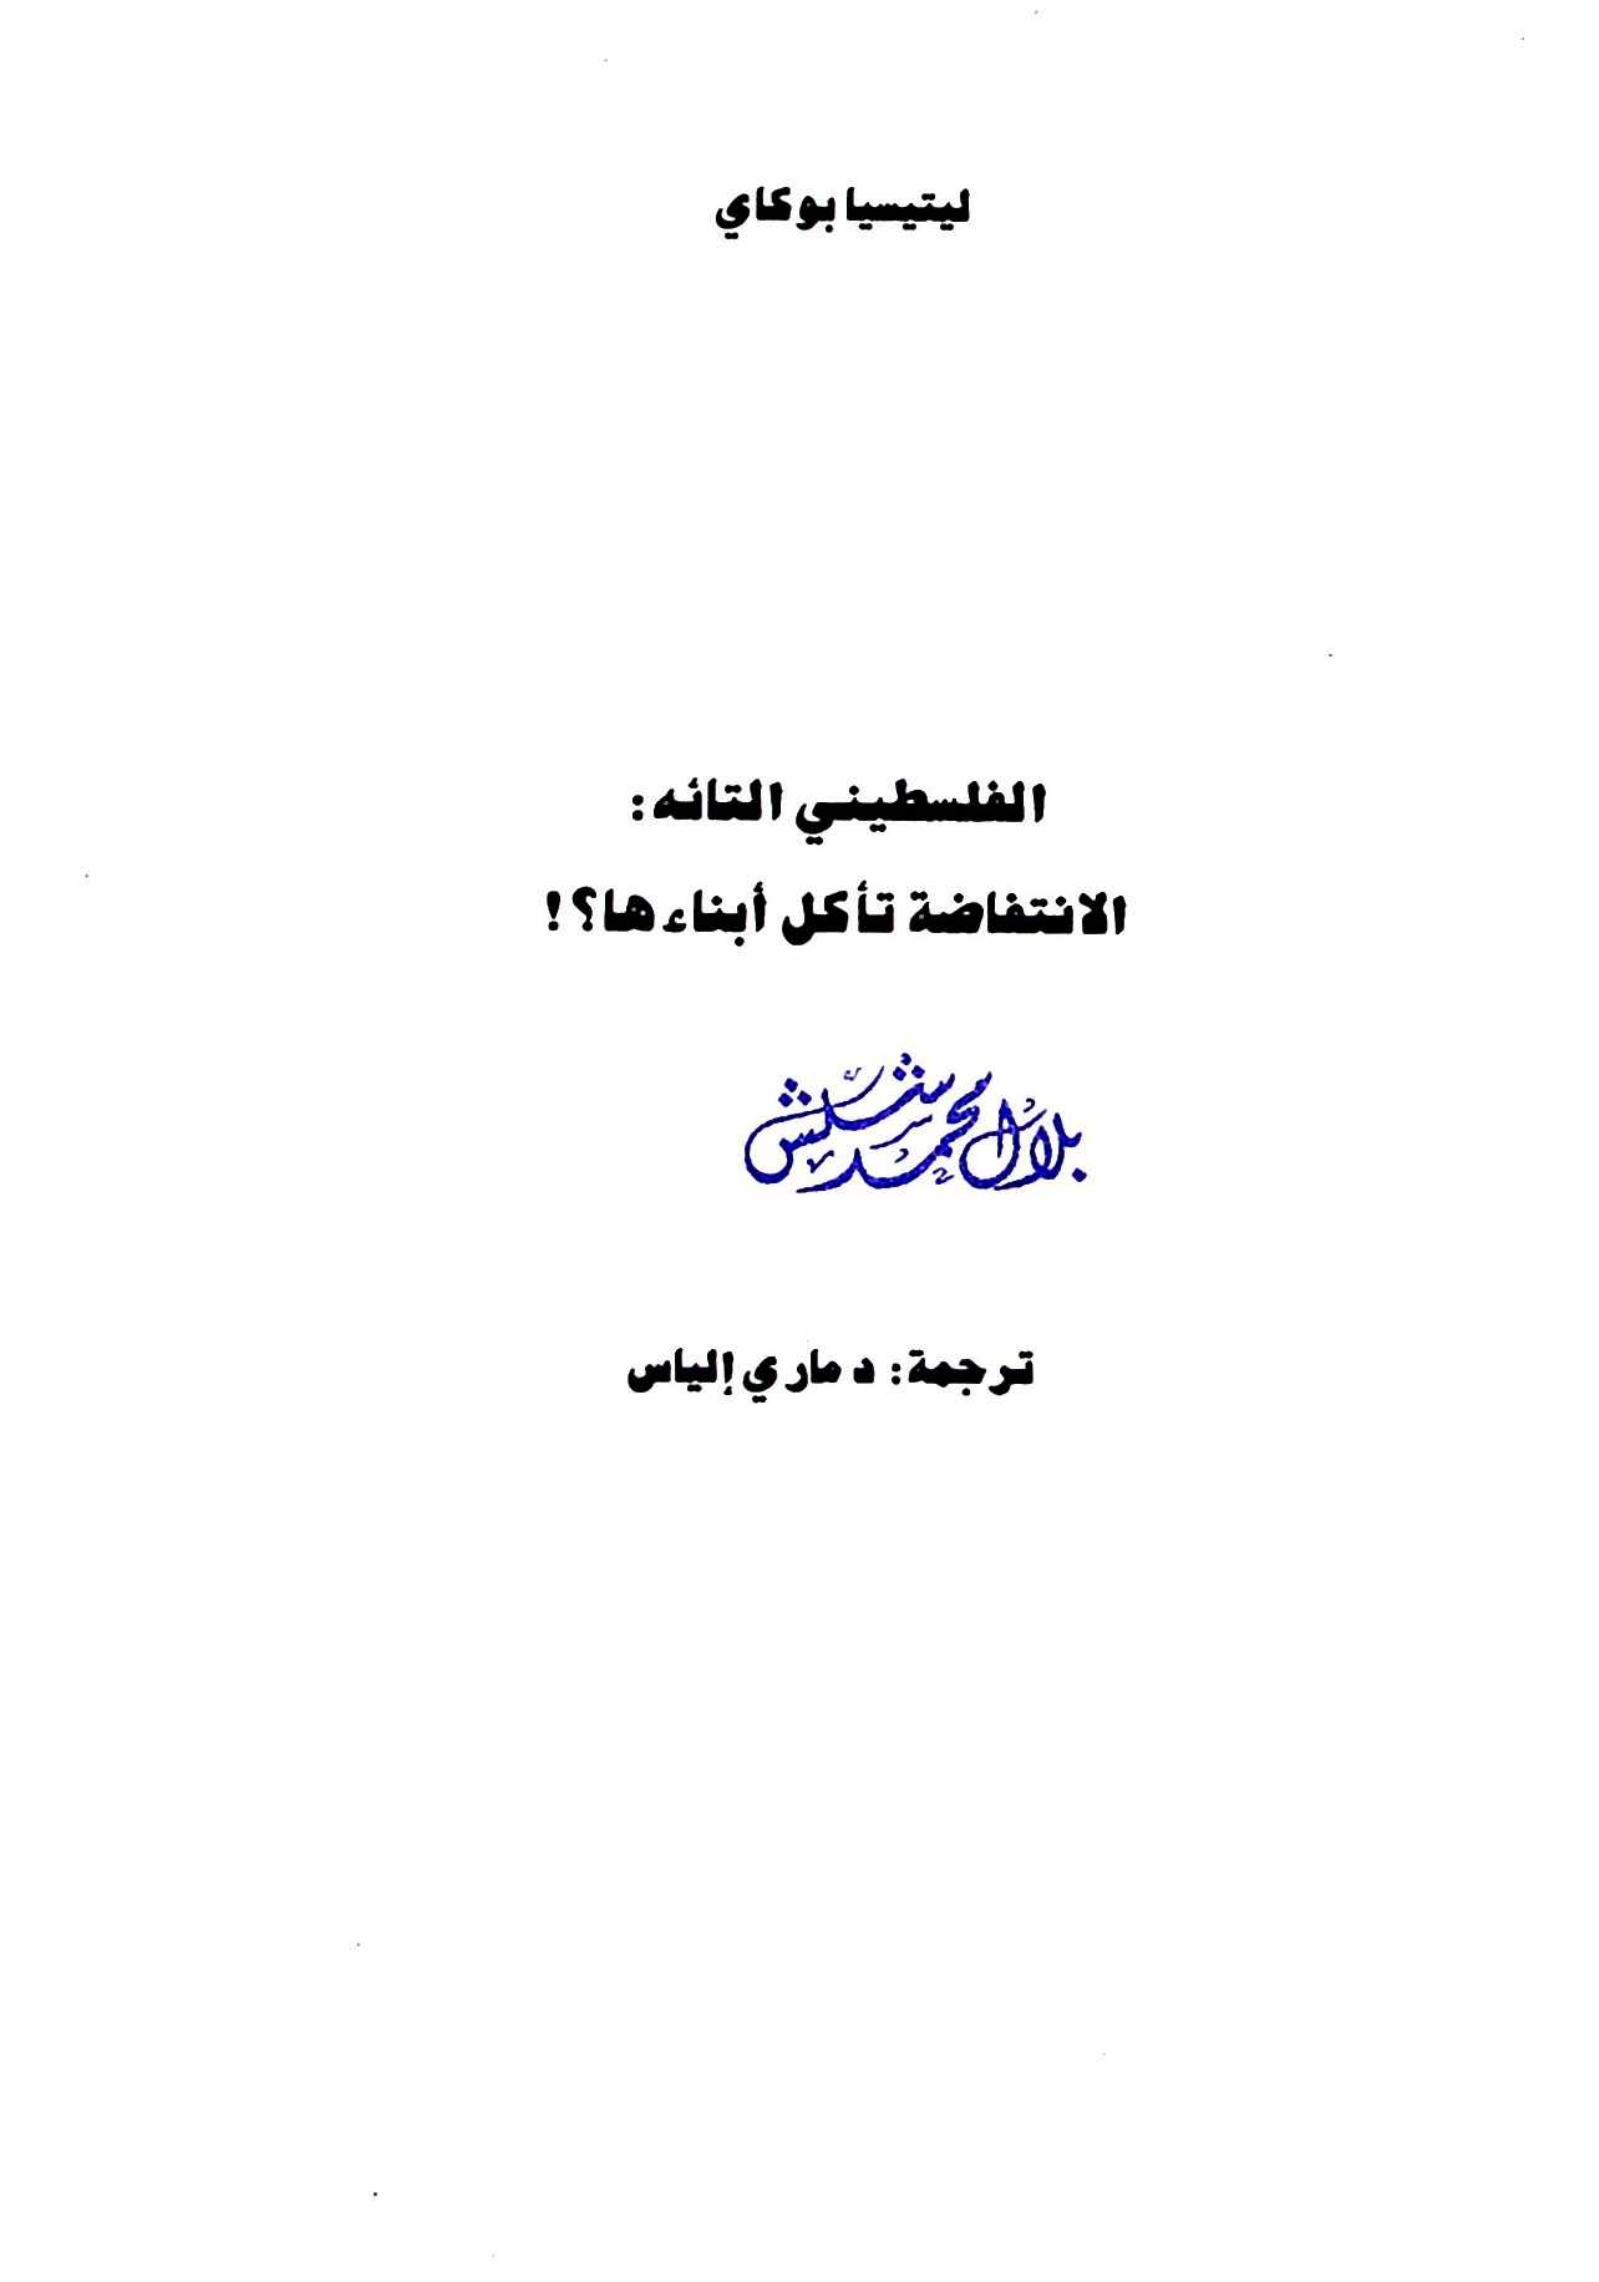 ليتيسيا بوكاي
الفلسطيني التائه:
الانتفاضة تأكل أبناءها؟!
بلال محمد شلش
ترجمة: د ماري إلياس